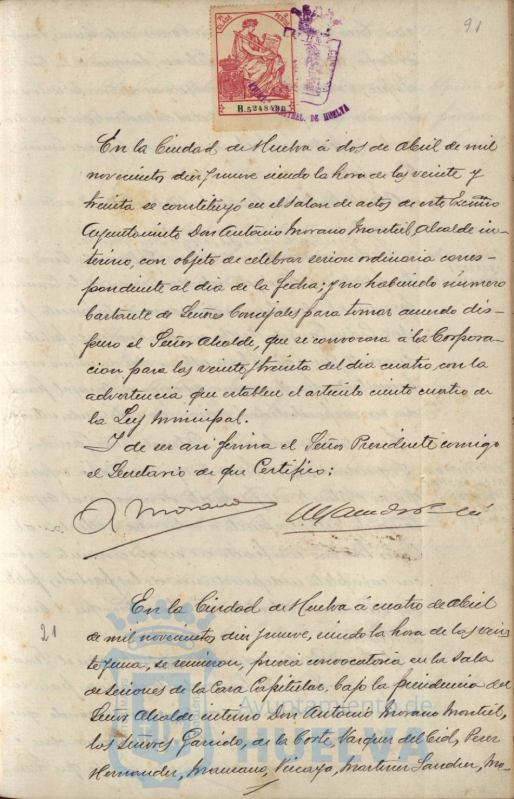 91
B.5248480
En la Ciudad de Huelva á dos de Abril de mil
novecientos diez y nueve siendo la hora de las veinte y
treinta se constituyó en el salon de actos de este Excmo
Ayuntamiento Don Antonio Morano Montiel Alcalde in-
terino, con objeto de celebrar sesion ordinaria corres-
pondiente al dia de la fecha; y no habiendo número
bastante de Señores Concejales para tomar acuerdo dis-
puso el Señor Alcalde, que se convocara á la Corpora-
cion para las veinte y treinta del dia cuatro, con la
advertencia que establece el artículo ciento cuatro de
la Ley Municipal.
Y de ser asi firma el Señor Presidente conmigo
el Secretario de que Certifico:
A Morano
21
En la Ciudad de Huelva á cuatro de Abril
de mil novecientos diez y nueve, siendo la hora de las vein-
te y una, se reunieron, previa convocatoria en la Sala
de Sesiones de la Casa Capitular, bajo la presidencia del
Señor Alcalde interino Don Antonio Morano Montiel,
los Señores Garrido, de la Corte, Vazquez del Cid, Perez
Hernandez, Manzano, Vizcaya, Martinez Sanchez, Mo-
Ayuntamiento de
HUELVA